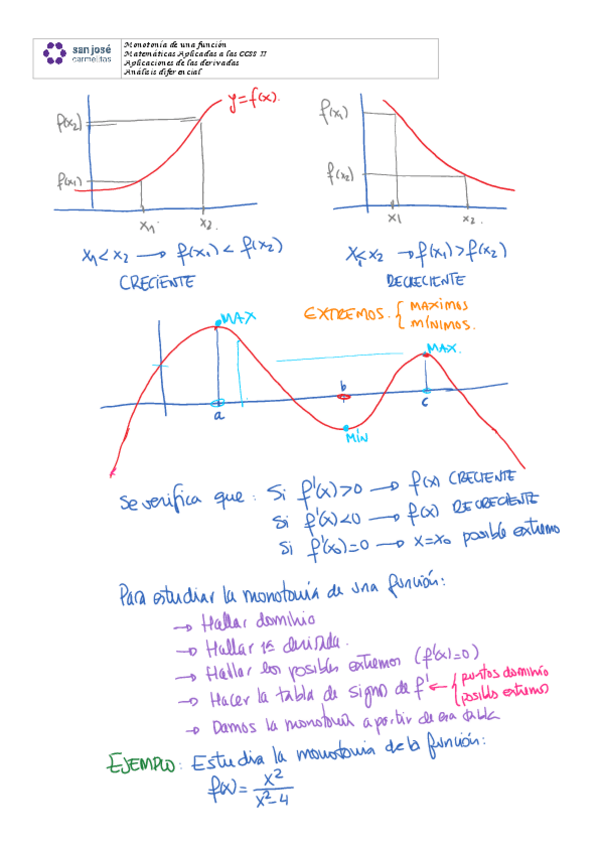 san josé
carmelitas
Monotonía de una función
Matemáticas Aplicadas a las CCSS II
Aplicaciones de las derivadas
Análisis diferencial
y=f(x).
f(x2)
f(x1)
x1 x2.
f(x1)
f(x2)
x1 x2.
x1<x2 → f(x1)<f(x2)
CRECIENTE
x1<x2 → f(x1)>f(x2)
DECRECIENTE
EXTREMOS. { MAXIMOS
MÍNIMOS.
MAX
MAX.
a
b
c
MÍN
Se verifica que: Si f'(x)>0 → f(x) CRECIENTE
Si f'(x)<0 → f(x) DECRECIENTE
Si f'(x0)=0 → x=x0 posible extremo
Para estudiar la monotonía de una función:
→ Hallar dominio
→ Hallar 1ª derivada.
→ Hallar los posibles extremos (f'(x)=0)
→ Hacer la tabla de signo de f' ← { puntos dominio
posibles extremos
→ Damos la monotonía a partir de esa tabla
EJEMPLO: Estudia la monotonía de la función:
f(x)= x²
x²-4